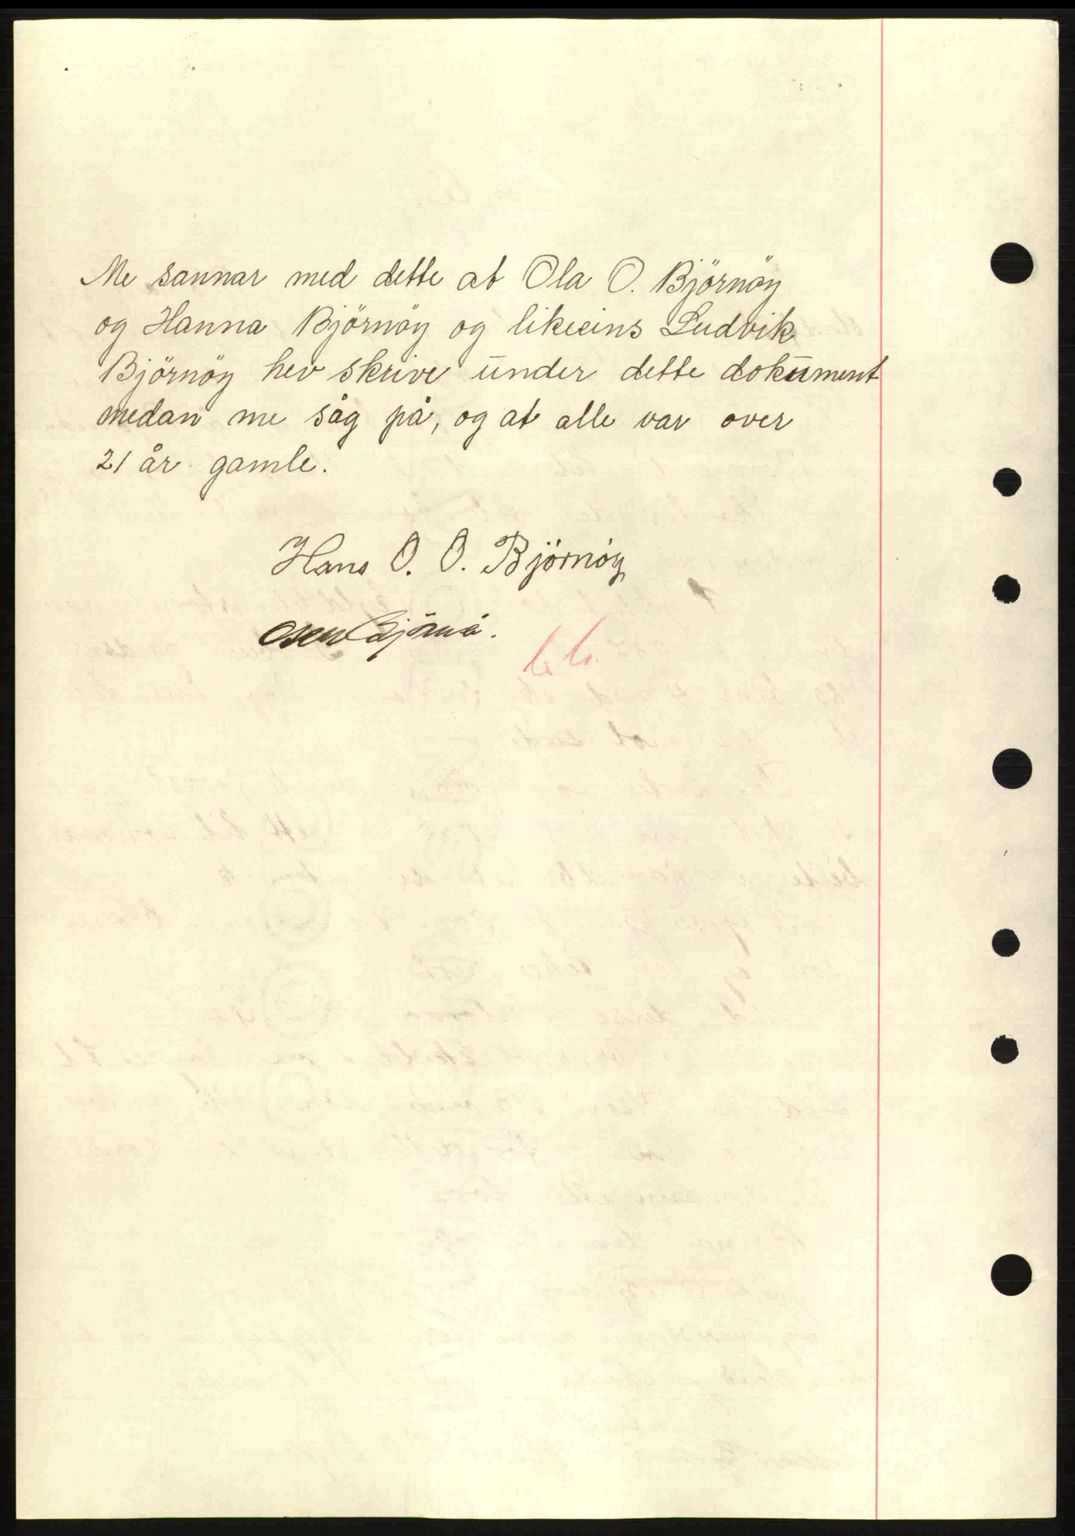 Me sannar med dette at Ola O. Björnöy
og Hanna Björnöy og likeeins Ludvik
Björnöy hev skrive under dette dokument
medan me såg på, og at alle var over
21 år gamle.
Hans O. O. Björnöy